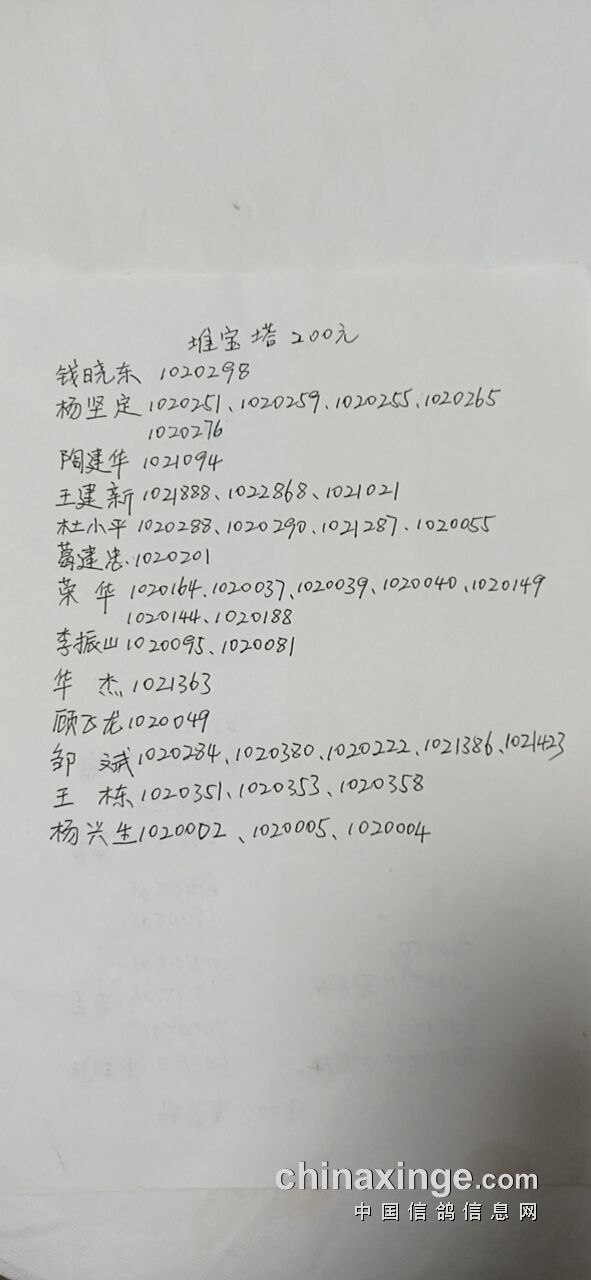 堆宝塔 200元
钱晓东 1020298
杨坚定 1020251、1020259、1020255、1020265
1020276
陶建华 1021094
王建新 1021888、1022868、1021021
杜小平 1020288、1020290、1021287、1020055
葛建忠 1020201
荣华 1020164、1020037、1020039、1020040、1020149
1020144、1020188
李振山 1020095、1020081
华杰 1021363
顾飞龙 1020049
邹斌 1020284、1020380、1020222、1021386、1021423
王栋 1020351、1020353、1020358
杨兴生 1020002、1020005、1020004
chinaxinge.com
中国信鸽信息网